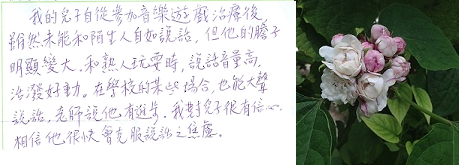 我的兒子自從參加音樂遊戲治療後,
雖然未能和陌生人自如說話,但他的膽子
明顯變大,和熟人玩耍時,說話音量高,
活潑好動。在學校的某些場合,也能大聲
說話,老師說他有進步,我對兒子很有信心,
相信他很快會克服說話之焦慮。